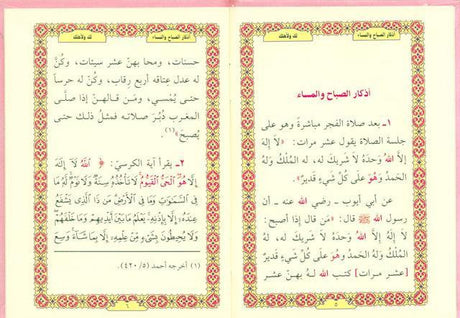 أذكار الصباح والمساء
لك ولأهلك
أذكار الصباح والمساء
١ـ بعد صلاة الفجر مباشرةً وهو على
جلسة الصلاة يقول عشر مرات: «لَا
إِلَهَ إِلَّا اللهُ وَحدَهُ لَا شَرِيكَ لَه، لَهُ المُلْكُ وَلَهُ
الحَمدُ وَهوَ عَلَى كُلِّ شَيءٍ قَدِيرٌ».
عن أبي أيوب ـ رضي الله عنه ـ أن
رسول الله ﷺ قال: «مَن قَالَ إذَا أصبَحَ:
لَا إلَهَ إلَّا اللهُ وَحدَهُ لَا شَرِيكَ له، له
المُلْكُ وَلَهُ الحَمدُ وَهوَ عَلَى كُلِّ شَيءٍ قَدِيرٌ
[عشر مرات] كتبَ الله لـه بهنَّ عشر
٥
أذكار الصباح والمساء
لك ولأهلك
حسنات، ومحا بهنَّ عشر سيئات، وكُنَّ
له عدل عتاقه أربع رقاب، وكُنَّ له حرساً
حتـى يُمْسـي، ومَـن قـالهـنَّ إذا صلَّـى
المغرب دُبُرَ صلاته فمثلُ ذلك حتى
يُصبحَ»(١).
٢ـ يقرأ آية الكرسيّ: ﴿اللَّهُ لَآ إِلَٰهَ
إِلَّا هُوَ الْحَيُّ الْقَيُّومُ لَا تَأْخُذُهُ سِنَةٌ وَلَا نَوْمٌ لَّهُ مَا
فِى السَّمَٰوَٰتِ وَمَا فِى الْأَرْضِ مَن ذَا الَّذِى يَشْفَعُ
عِندَهُۥٓ إِلَّا بِإِذْنِهِۦ يَعْلَمُ مَا بَيْنَ أَيْدِيهِمْ وَمَا خَلْفَهُمْ
وَلَا يُحِيطُونَ بِشَىْءٍ مِّنْ عِلْمِهِۦٓ إِلَّا بِمَا شَآءَ وَسِعَ
(١) أخرجه أحمد (٥/ ٤٢٠)
٦